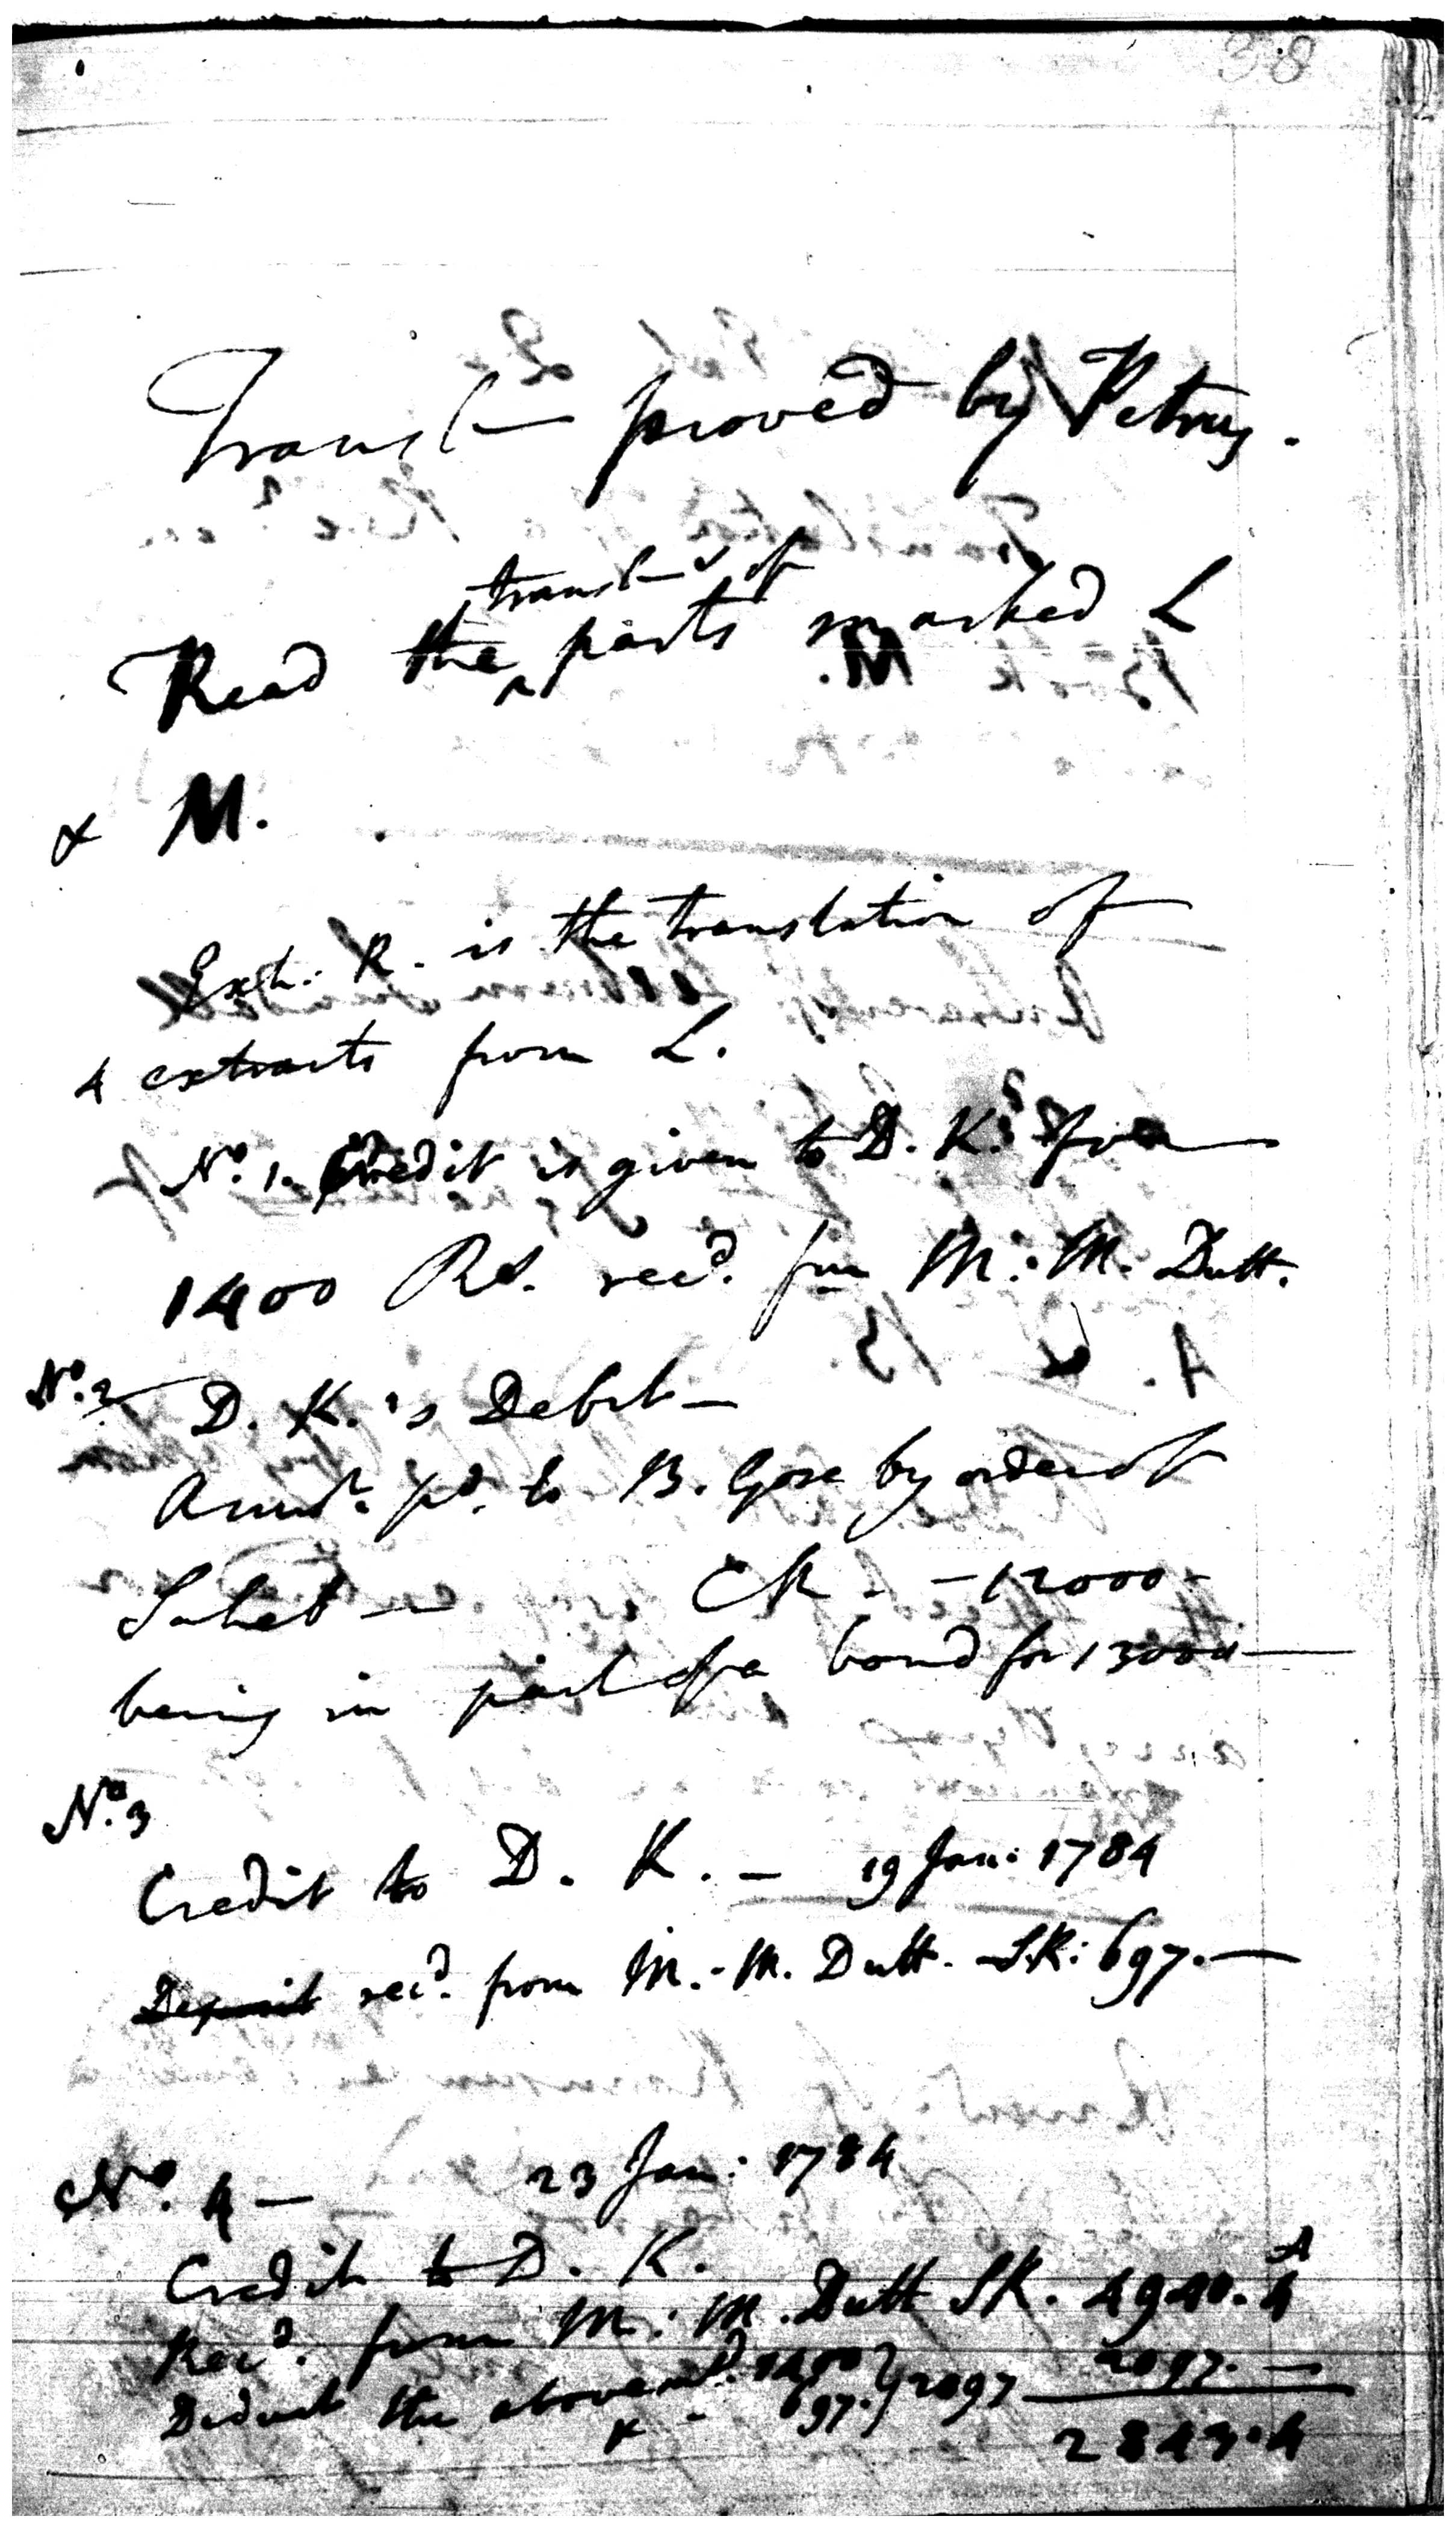 38
Transl— proved by Petruς.
transl—s of
Read the ‸ parts marked L
& M.
Exh: R. is the translation of
4 extracts from L.
No. 1. Credit is given to D. K. for
1400 Rs. recd. from M. M. Dutt.
No. 2 D. K.'s Debit—
Amot. pd. to B. Gose by order of
Saheb — CR. - 12000-
being in part of a bond for 13000—
No. 3
Credit to D. K. — 19 Jan: 1784
Deposit recd. from M. M. Dutt. S.R: 697.—
No. 4 — 23 Jan: 1784
Credit to D. K.
Recd. from M. M. Dutt SR. 4940. 4
Deduct the above 1400 } 2097 2097. —
& - 697.
2843. 4